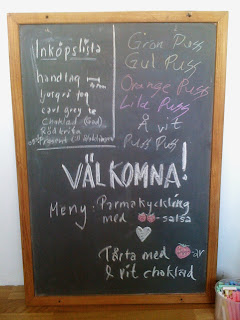 Inköpslista
handtag
ljusgrå tog
earl grey
Choklad (God)
Rödkrita
Present till
Grön Puss
Gul Puss
Orange Puss
Lila Puss
Å vit
Puss Puss
VÄLKOMNA!
Meny: Parmakyckling
med -salsa
Tårta med ar
& vit choklad